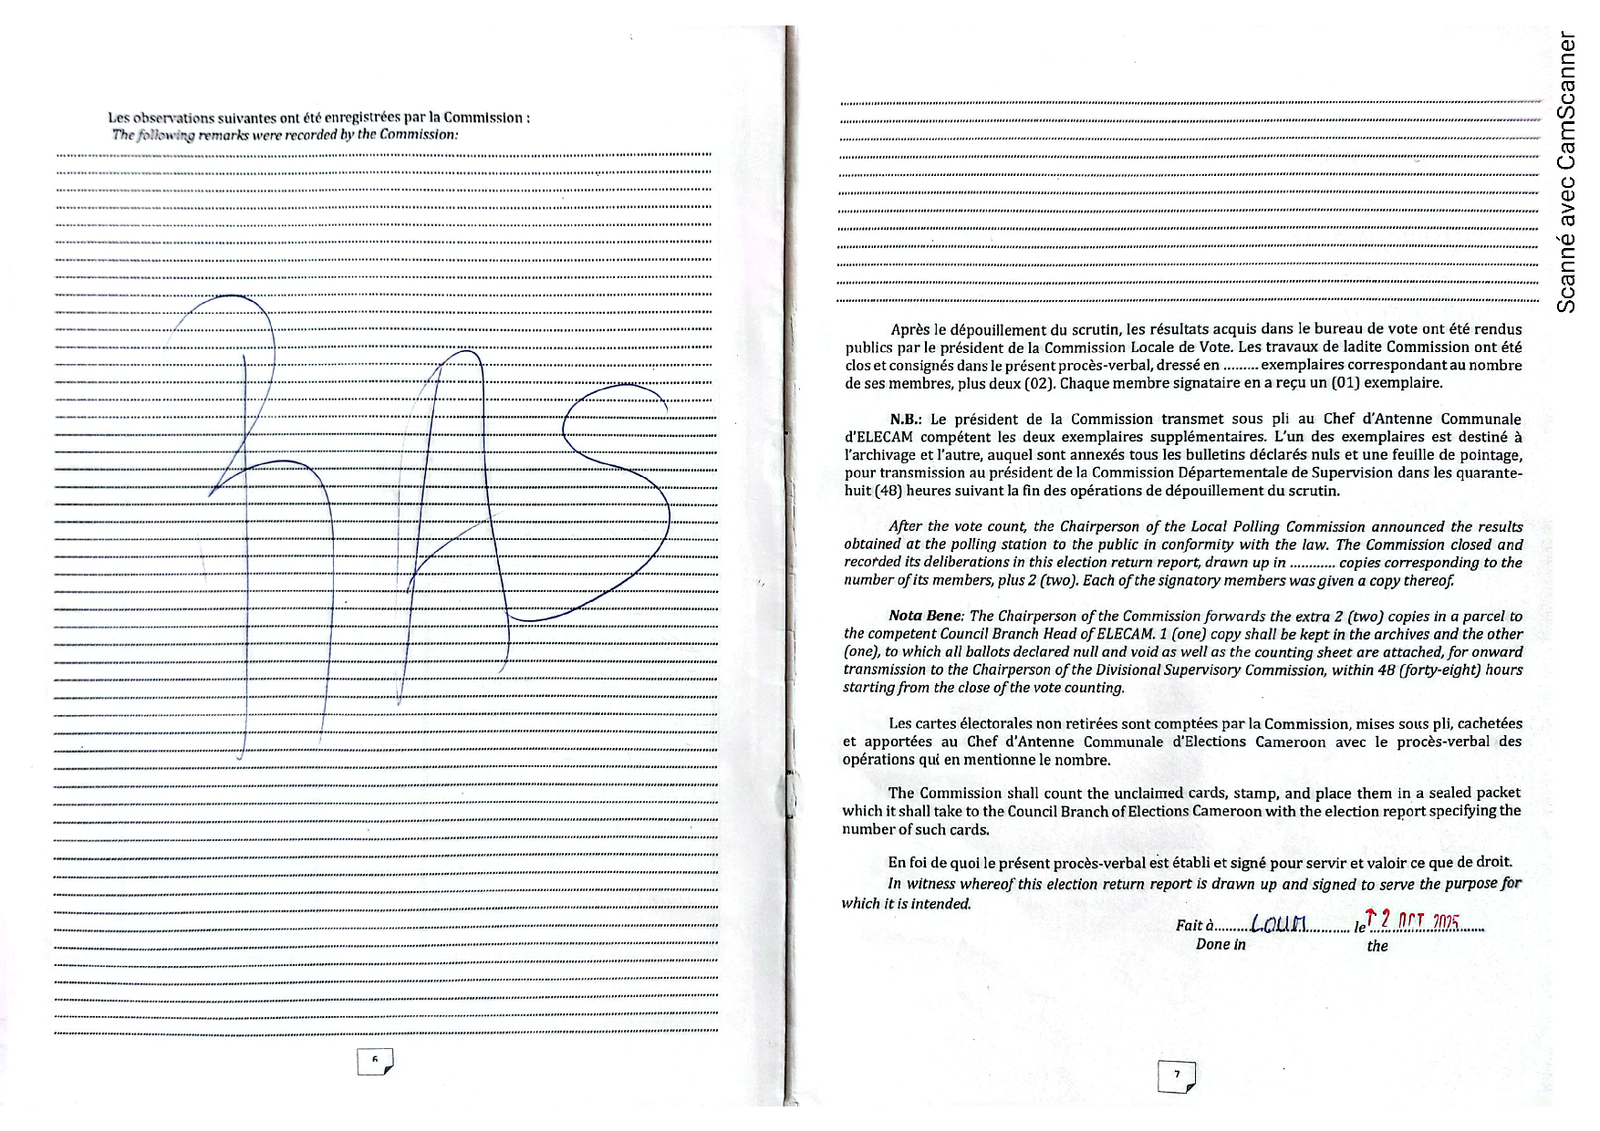 Les observations suivantes ont été enregistrées par la Commission :
The following remarks were recorded by the Commission:
RAS
6
Après le dépouillement du scrutin, les résultats acquis dans le bureau de vote ont été rendus
publics par le président de la Commission Locale de Vote. Les travaux de ladite Commission ont été
clos et consignés dans le présent procès-verbal, dressé en ......... exemplaires correspondant au nombre
de ses membres, plus deux (02). Chaque membre signataire en a reçu un (01) exemplaire.
N.B.: Le président de la Commission transmet sous pli au Chef d'Antenne Communale
d'ELECAM compétent les deux exemplaires supplémentaires. L'un des exemplaires est destiné à
l'archivage et l'autre, auquel sont annexés tous les bulletins déclarés nuls et une feuille de pointage,
pour transmission au président de la Commission Départementale de Supervision dans les quarante-
huit (48) heures suivant la fin des opérations de dépouillement du scrutin.
After the vote count, the Chairperson of the Local Polling Commission announced the results
obtained at the polling station to the public in conformity with the law. The Commission closed and
recorded its deliberations in this election return report, drawn up in ............ copies corresponding to the
number of its members, plus 2 (two). Each of the signatory members was given a copy thereof.
Nota Bene: The Chairperson of the Commission forwards the extra 2 (two) copies in a parcel to
the competent Council Branch Head of ELECAM. 1 (one) copy shall be kept in the archives and the other
(one), to which all ballots declared null and void as well as the counting sheet are attached, for onward
transmission to the Chairperson of the Divisional Supervisory Commission, within 48 (forty-eight) hours
starting from the close of the vote counting.
Les cartes électorales non retirées sont comptées par la Commission, mises sous pli, cachetées
et apportées au Chef d'Antenne Communale d'Elections Cameroon avec le procès-verbal des
opérations qui en mentionne le nombre.
The Commission shall count the unclaimed cards, stamp, and place them in a sealed packet
which it shall take to the Council Branch of Elections Cameroon with the election report specifying the
number of such cards.
En foi de quoi le présent procès-verbal est établi et signé pour servir et valoir ce que de droit.
In witness whereof this election return report is drawn up and signed to serve the purpose for
which it is intended.
Fait à.........LOUM........... le 12 OCT 2025......
Done in the
7
Scanné avec CamScanner